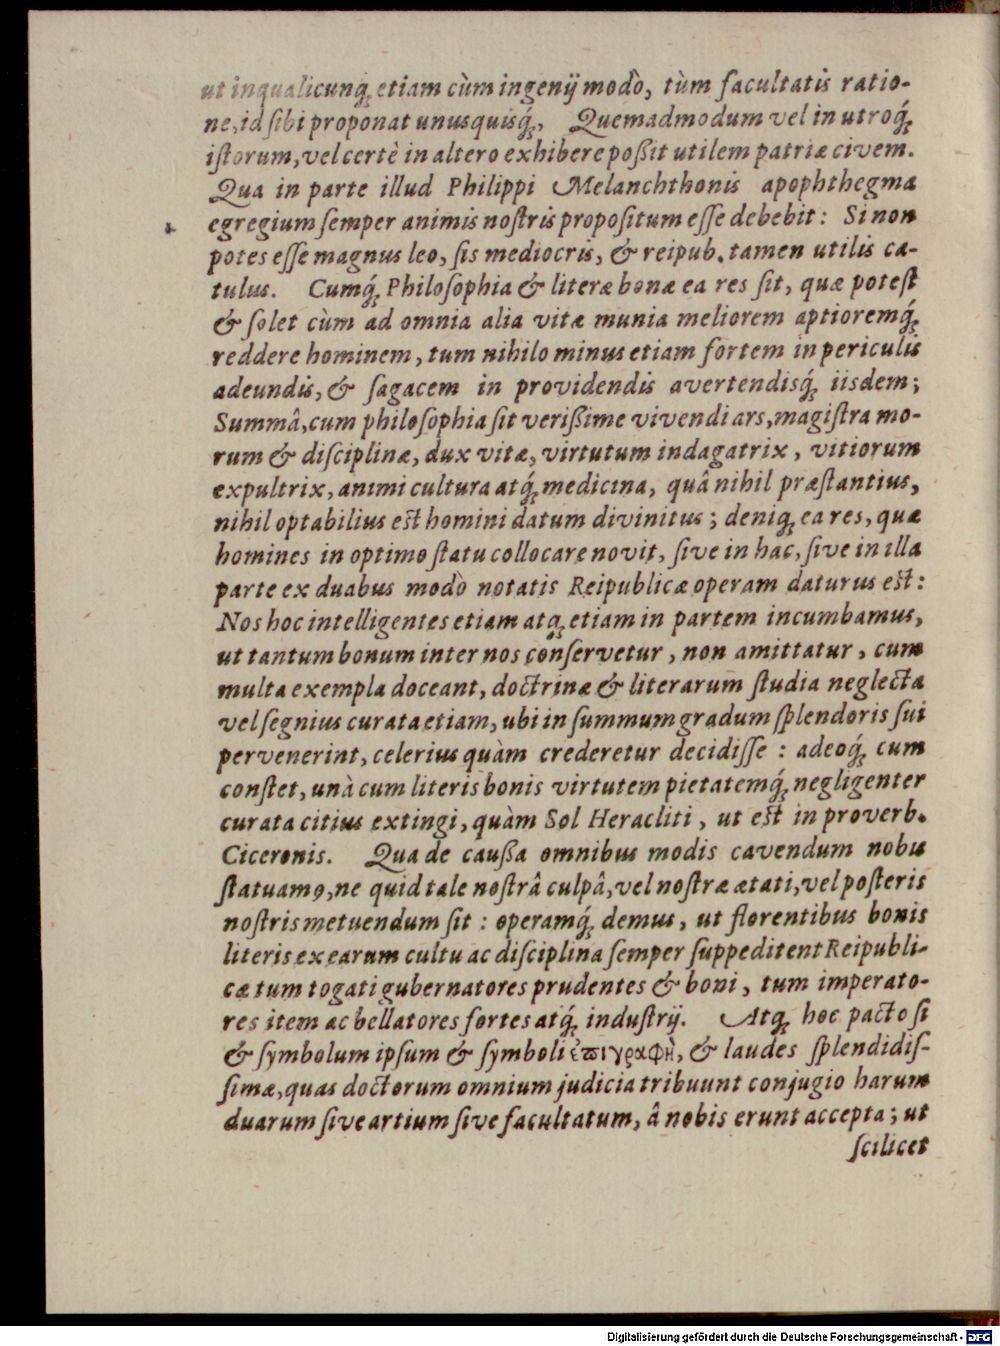 ut in qualicunq́; etiam cùm ingenij modò, tùm facultatis ratio-
ne, id ſibi proponat unusquisq́;, Quemadmodum vel in utroq́;
iſtorum, vel certè in altero exhibere poßit utilem patriæ civem.
Qua in parte illud Philippi Melanchthonis apophthegma
egregium ſemper animis noſtris propoſitum eſſe debebit: Si non
potes eſſe magnus leo, ſis mediocris, & reipub. tamen utilis ca-
tulus. Cumq́; Philoſophia & literæ bonæ ea res ſit, quæ poteſt
& ſolet cùm ad omnia alia vitæ munia meliorem aptioremq́;
reddere hominem, tum nihilo minus etiam fortem in periculis
adeundis, & ſagacem in providendis avertendisq́; iisdem;
Summâ, cum philoſophia ſit verißime vivendi ars, magiſtra mo-
rum & diſciplinæ, dux vitæ, virtutum indagatrix, vitiorum
expultrix, animi cultura atq́; medicina, quâ nihil præſtantius,
nihil optabilius eſt homini datum divinitus; deniq; ea res, quæ
homines in optimo ſtatu collocare novit, ſive in hac, ſive in illa
parte ex duabus modò notatis Reipublicæ operam daturus eſt:
Nos hoc intelligentes etiam atq; etiam in partem incumbamus,
ut tantum bonum inter nos conſervetur, non amittatur, cum
multa exempla doceant, doctrinæ & literarum ſtudia neglecta
vel ſegnius curata etiam, ubi in ſummum gradum ſplendoris ſui
pervenerint, celerius quàm crederetur decidiſſe: adeoq́; cum
conſtet, unà cum literis bonis virtutem pietatemq́; negligenter
curata citius extingi, quàm Sol Heracliti, ut eſt in proverb.
Ciceronis. Qua de cauſſa omnibus modis cavendum nobis
ſtatuamꝰ, ne quid tale noſtrâ culpâ, vel noſtræ ætati, vel poſteris
noſtris metuendum ſit: operamq́; demus, ut florentibus bonis
literis ex earum cultu ac diſciplina ſemper ſuppeditent Reipubli-
cæ tum togati gubernatores prudentes & boni, tum imperato-
res item ac bellatores fortes atq́; induſtrij. Atq; hoc pacto ſi
& ſymbolum ipſum & ſymboli ἐπιγραφὴ, & laudes ſplendidiſ-
ſimæ, quas doctorum omnium judicia tribuunt conjugio harum
duarum ſive artium ſive facultatum, â nobis erunt accepta; ut
ſcilicet
Digitalisierung gefördert durch die Deutsche Forschungsgemeinschaft - DFG